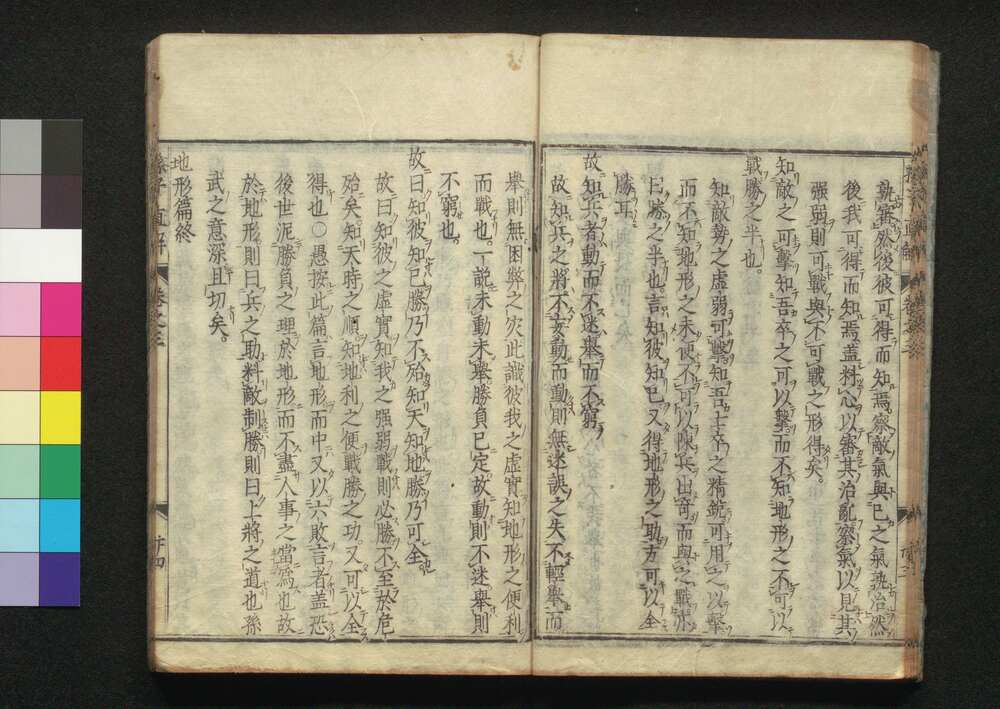 孰審然後彼可得而知焉察敵氣與己之氣孰治然
後我可得而知焉蓋料心以審其治亂察氣以見其
强弱則可戰與不可戰之形得矣。
知敵之可擊知吾卒之可以擊而不知地形之不可以
戰勝之半也。
知敵勢之虛弱可擊知吾士卒之精銳可用之以擊
而不知地形之未便不可以陳兵出奇而與之戰亦
曰勝之半也言知彼知己又得地形之助方可以全
勝耳
故知兵者動而不迷舉而不窮
故知兵之將不妄動而動則無迷誤之失不輕舉而
舉則無困弊之灾此識彼我之虛實知地形之便利
而戰也。一說未動未舉勝負已定故動則不迷舉則
不窮也。
故曰知彼知己勝乃不殆知天知地勝乃可全
故曰知彼之虛實知我之强弱戰則必勝不至於危
殆矣知天時之順知地利之便戰勝之功又可以全
得也〇愚按此篇言地形而中又以六敗言者蓋恐
後世泥勝負之理於地形而不盡人事之當爲也故
於地形則曰兵之助料敵制勝則曰上將之道也孫
武之意深且切矣。
地形篇終
孫子直解 卷之三 廿四